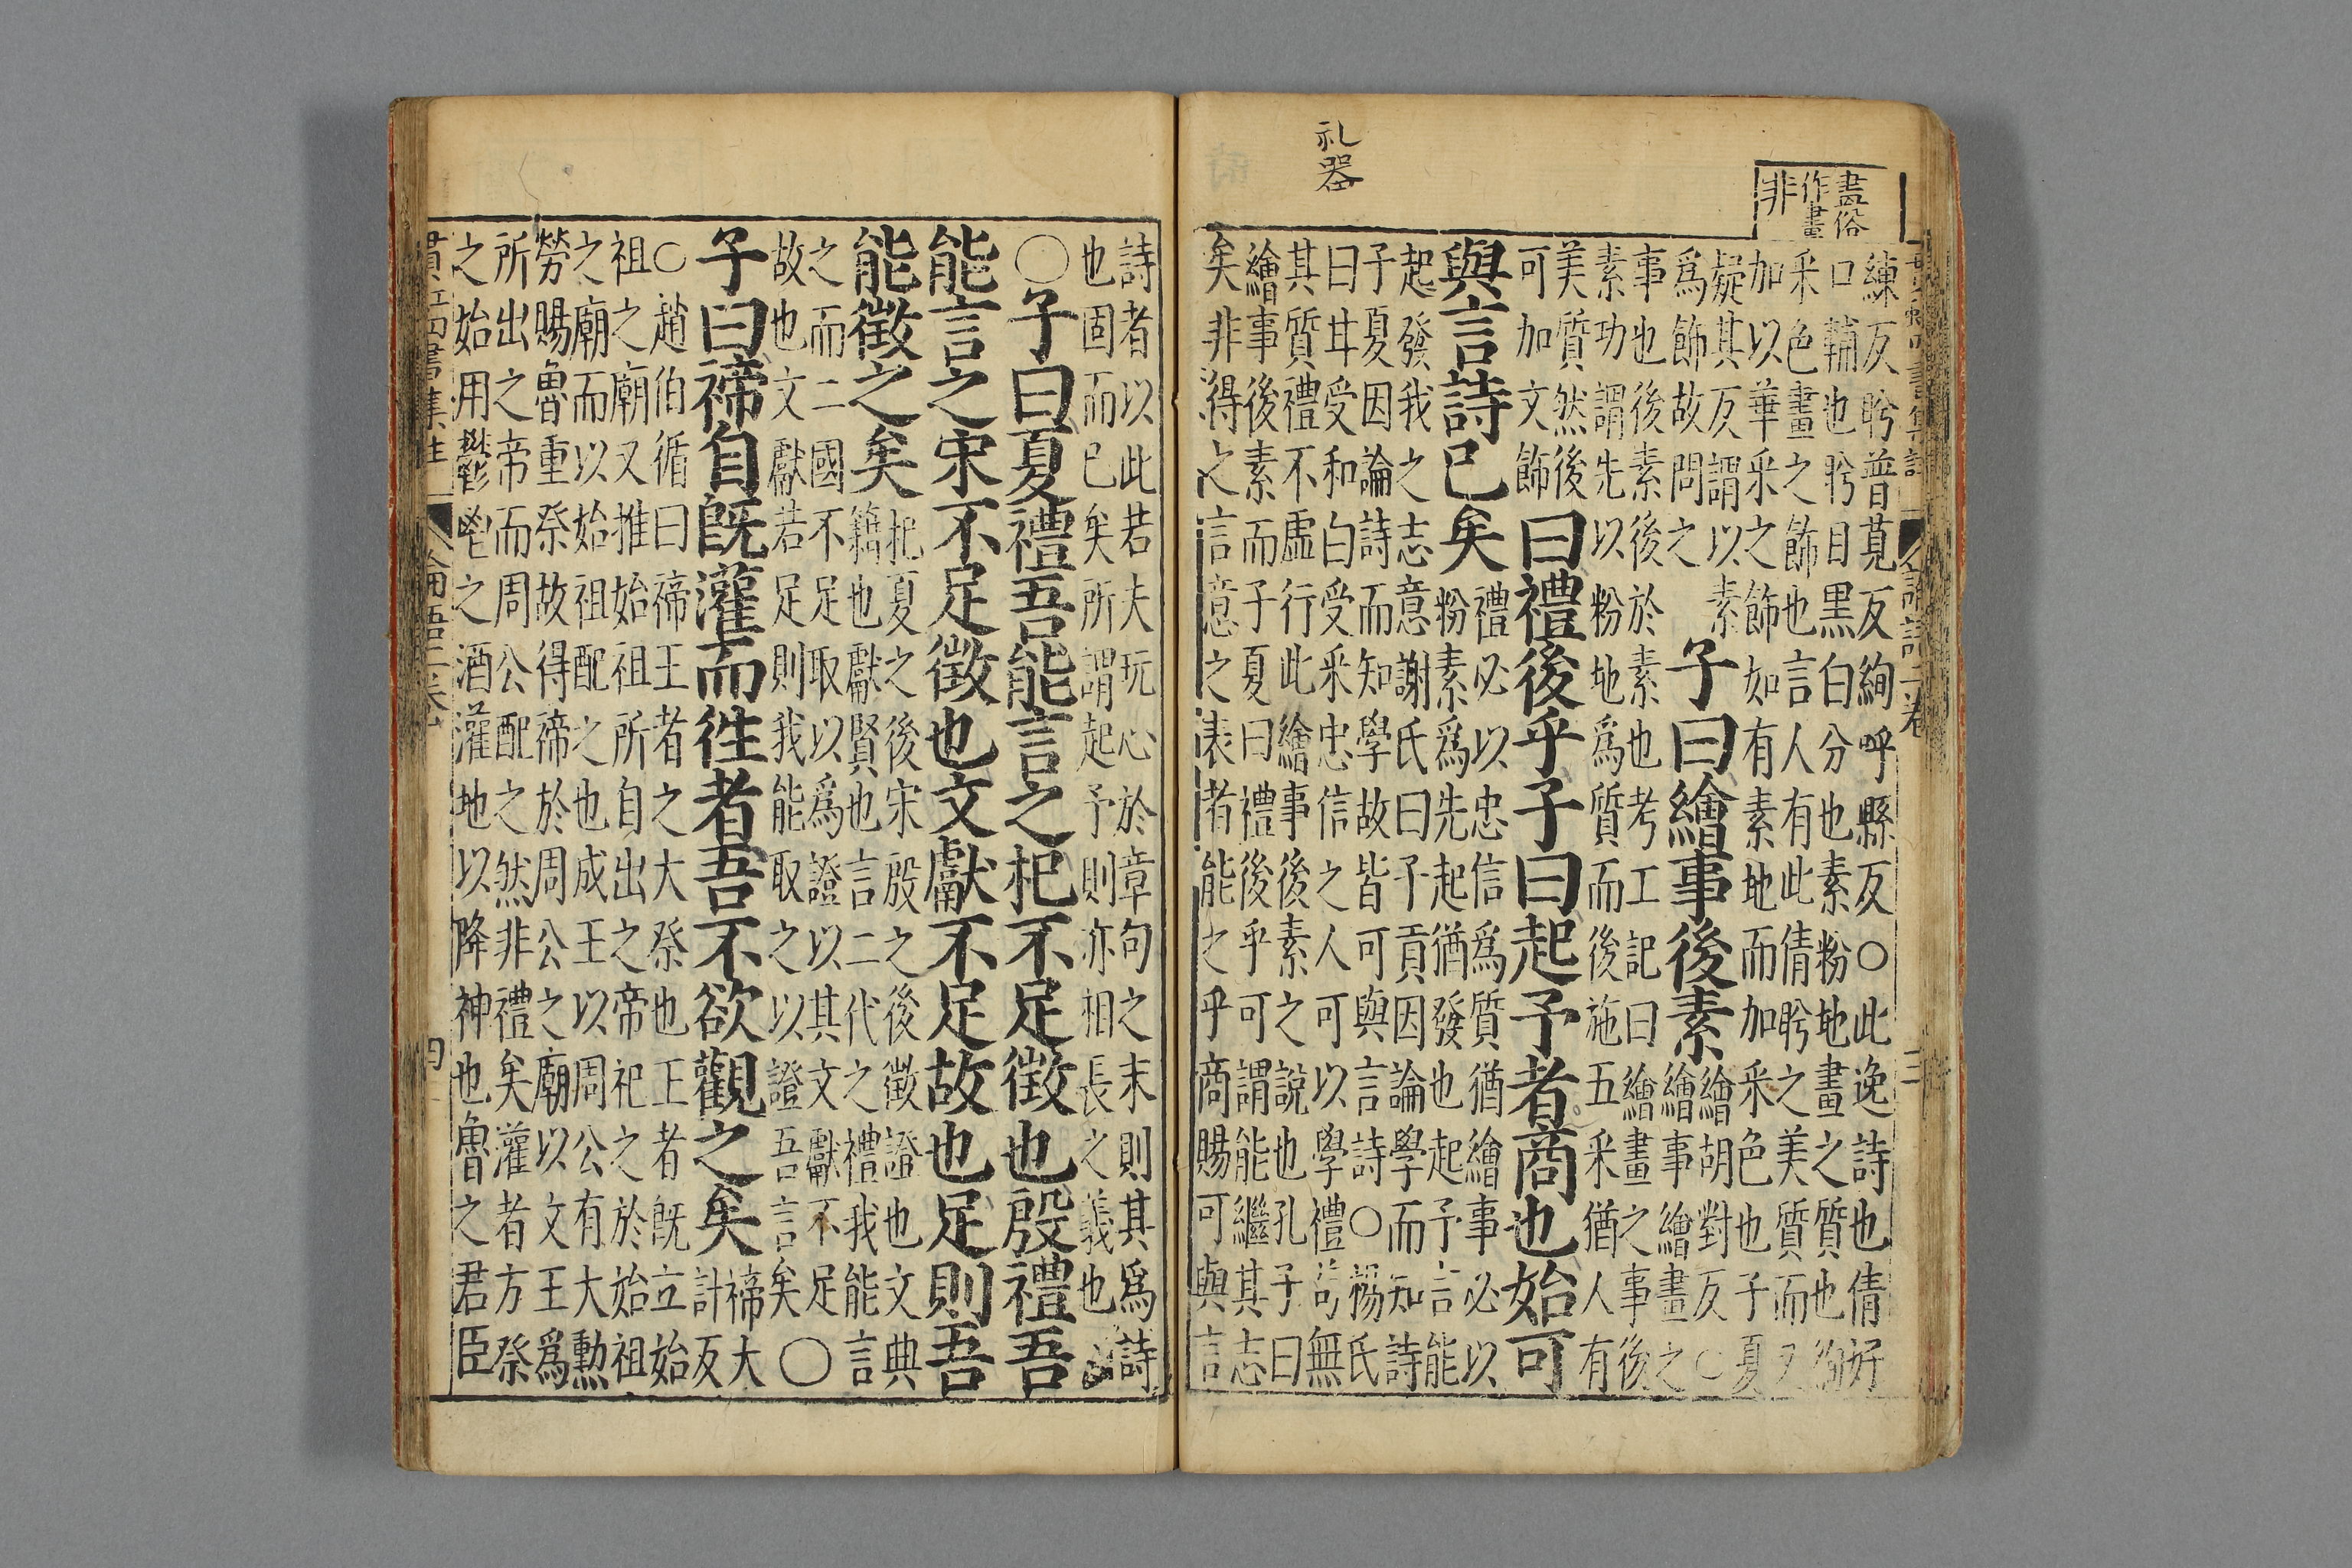 畫俗
作畫
非
礼器
練反盻普莧反絢呼縣反○此逸詩也倩好
口輔也盻目黑白分也素粉地畫之質也絢
采色畫之飾也言人有此倩盻之美質而又
加以華采之飾如有素地而加采色也子夏
疑其反謂以素
爲飾故問之
子曰繪事後素
繪胡對反○
繪事繪畫之
事也後素後於素也考工記曰繪畫之事後
素功謂先以粉地爲質而後施五采猶人有
美質然後
可加文飾
曰禮後乎子曰起予者商也始可
與言詩已矣
禮必以忠信爲質猶繪事必以
粉素爲先起猶發也起予言能
起發我之志意謝氏曰子貢因論學而知詩
子夏因論詩而知學故皆可與言詩○楊氏
曰甘受和白受采忠信之人可以學禮苟無
其質禮不虛行此繪事後素之說也孔子曰
繪事後素而子夏曰禮後乎可謂能繼其志
矣非得之言意之表者能之乎商賜可與言
詩者以此若夫玩心於章句之末則其爲詩
也固而已矣所謂起予則亦相長之義也
○子曰夏禮吾能言之杞不足徵也殷禮吾
能言之宋不足徵也文獻不足故也足則吾
能徵之矣
杞夏之後宋殷之後徵證也文典
籍也獻賢也言二代之禮我能言
之而二國不足取以爲證以其文獻不足
故也文獻若足則我能取之以證吾言矣○
子曰禘自旣灌而徃者吾不欲觀之矣
禘大
計反
○趙伯循曰禘王者之大祭也王者旣立始
祖之廟又推始祖所自出之帝祀之於始祖
之廟而以始祖配之也成王以周公有大勲
勞賜魯重祭故得禘於周公之廟以文王爲
所出之帝而周公配之然非禮矣灌者方祭
之始用鬱鬯之酒灌地以降神也魯之君臣